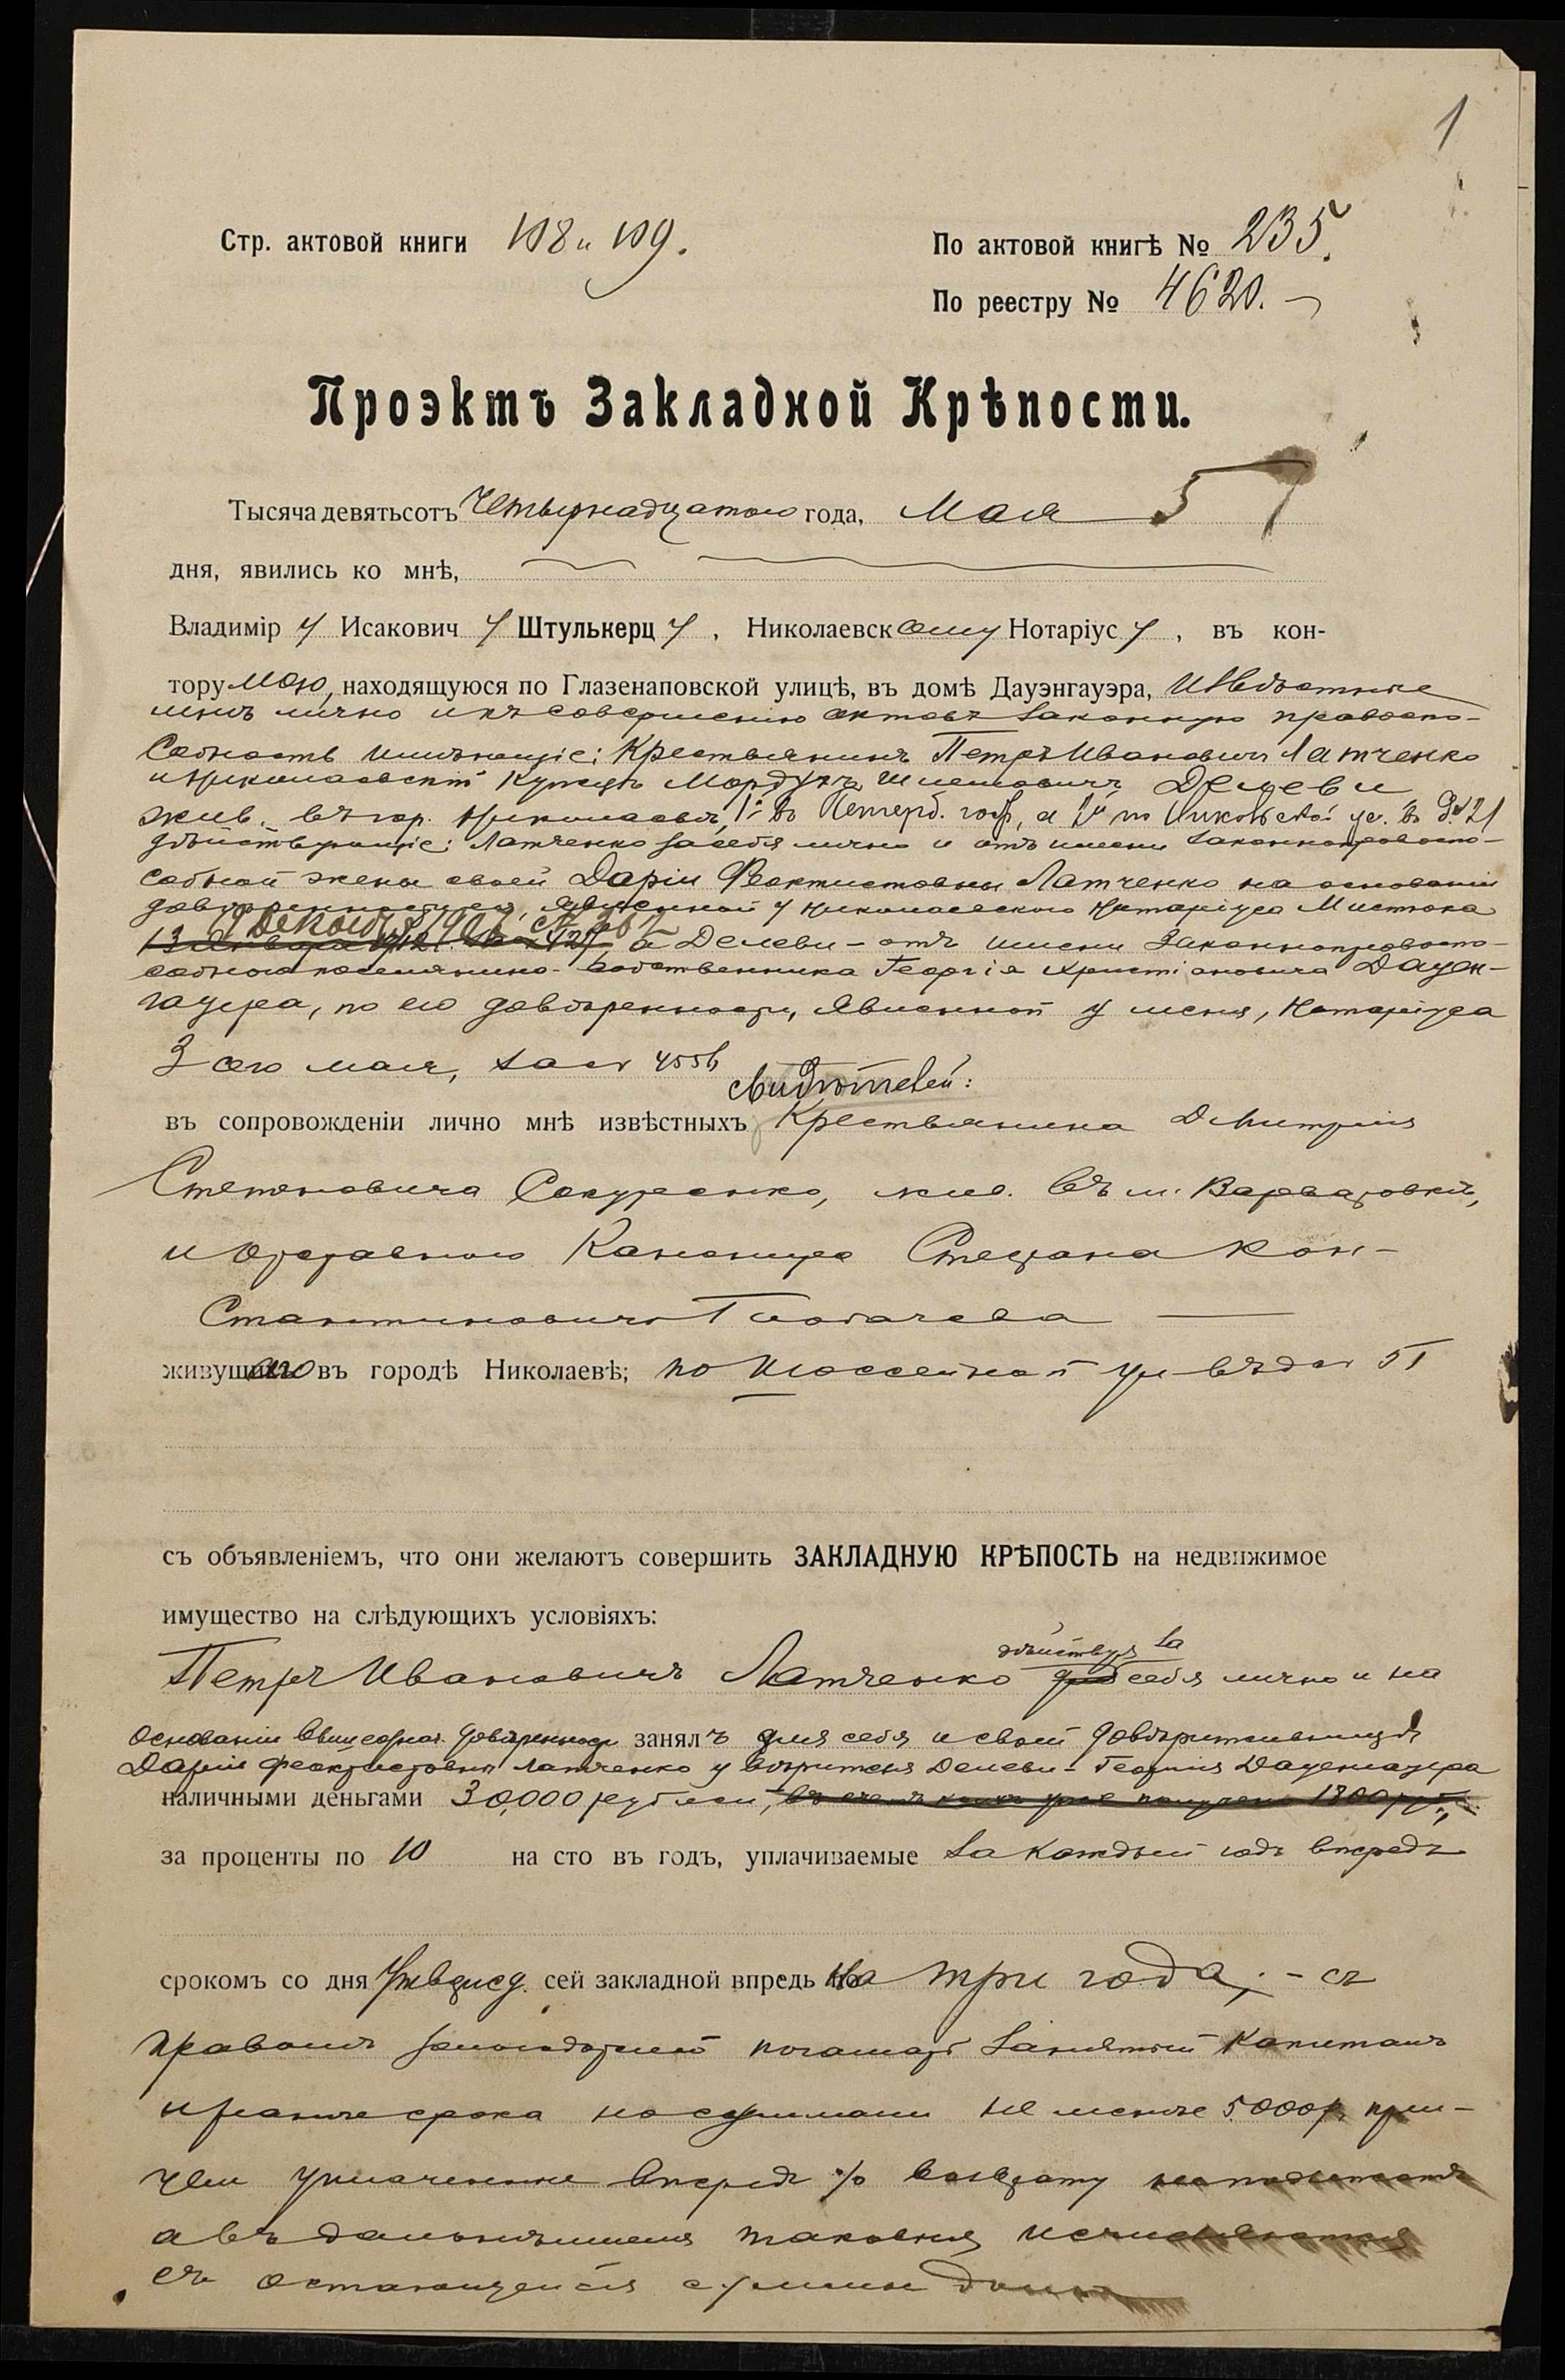 1
Стр. актовой книги 108 и 109.
По актовой книгѣ № 235.
По реестру № 4620.
Проэктъ Закладной Крѣпости.
Тысяча девятьсотъ четырнадцатого года, Мая 5
дня, явились ко мнѣ,
Владимір у Исакович у Штулькерц у, Николаевскому Нотаріус у, въ кон-
тору мою, находящуюся по Глазенаповской улицѣ, въ домѣ Дауэнгауэра, извѣстные
мнѣ лично и къ совершенію актовъ законную правоспо-
собность имѣющіе: Крестьянинъ Петръ Ивановичъ Латченко
и Николаевскій Купецъ Мордухъ Делеви
жив. въ гор. Николаевѣ, 1й въ Петерб. гост., а 2й по ул. въ д. № 21
дѣйствующіе: Латченко за себя лично и отъ имени законноправоспо-
собной жены своей Даріи Феоктистовны Латченко на основаніи
довѣренности ея, явленной у Николаевского Нотаріуса
13 Января 1912 а Делеви - отъ имени законноправоспо-
собного поселянина-собственника Георгія Христіановича Дауэн-
гауэра, по его довѣренности, явленной у меня, Нотаріуса
3 сего мая, за № 4556
свидѣтелей:
въ сопровожденіи лично мнѣ извѣстныхъ Крестьянина Дмитрія
Степановича Сокуренко, жив. въ м. Варваровкѣ,
и отставного Канонира Степана Кон-
стантиновича
живущаго въ городѣ Николаевѣ; по Шоссейной ул. въ д № 51
съ объявленіемъ, что они желаютъ совершить ЗАКЛАДНУЮ КРѢПОСТЬ на недвижимое
имущество на слѣдующихъ условіяхъ:
дѣйствуя за
Петръ Ивановичъ Латченко себя лично и на
основаніи довѣренности занялъ для себя и своей довѣрительницы
Даріи Феоктистовны Латченко у вѣрителя Делеви - Георгія Дауенгауера
наличными деньгами 30,000 рублей, въ счетъ коихъ уже получено 1800 руб.,
за проценты по 10 на сто въ годъ, уплачиваемые за каждый годъ впредъ
срокомъ со дня утвержд. сей закладной впредь на три года; - съ
правомъ погашать занятый капиталъ
и ранѣе срока не менѣе 5000 р при-
чем уплаченные впередъ % возврату не подлежатъ
а въ дальнѣйшемъ таковые исчисляются
съ остающейся суммы долга